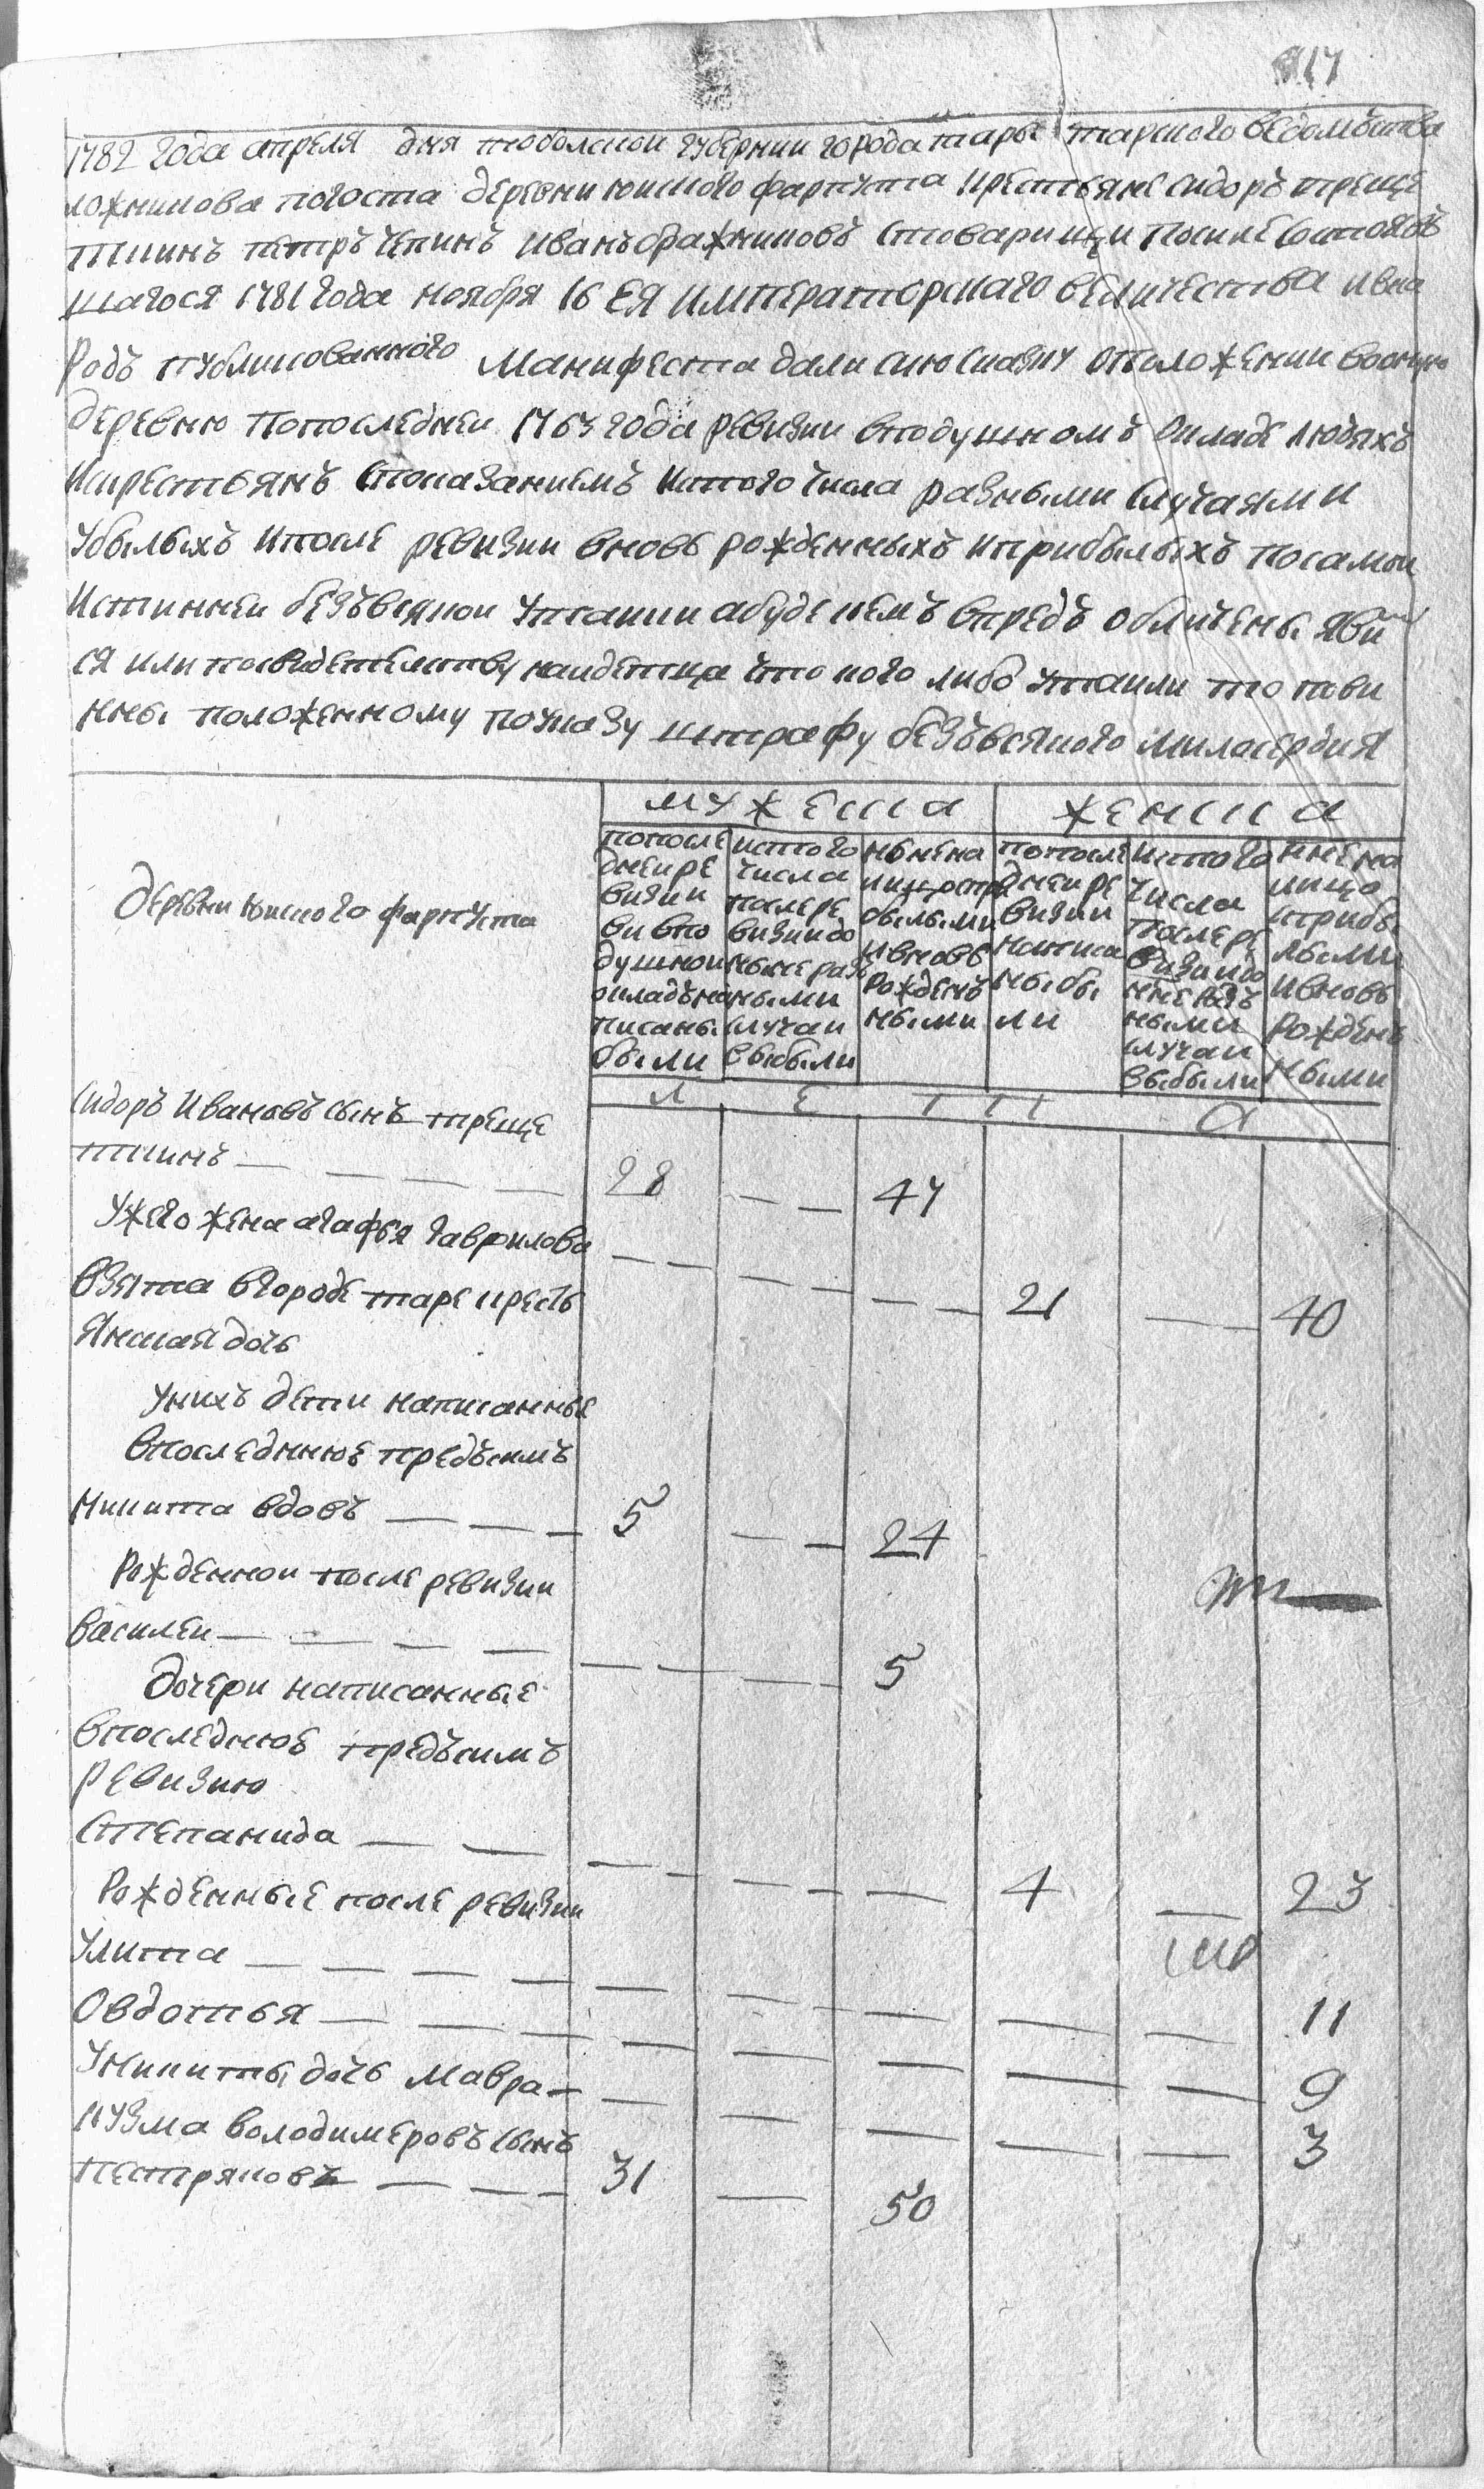 117
1782 года апреля дня тоболскои губернии города тары тарского ведомъства
ложникова погоста деревни юшкого фарпуста крестьяне сидоръ треще
ткинъ петръ чекинъ иванъ бражниковъ стоварищи после состоявъ
шагося 1781 года ноября 16 ея императорскаго величества ивна
родъ публикованного манифеста дали сию сказку оположении вооную
деревню попоследнеи 1763 года ревизии вподушномъ окладе людяхъ
икрестьянъ споказаниемъ истого числа разными случаями
убылыхъ ипосле ревизии вновь рожденныхъ иприбылыхъ посамои
истиннеи безъвсякои утаики абуде кемъ впредь обличены яви
ся или посвидетелству наидетца что кого либо утаили то пови
нны положенному поуказу штрафу безъвсякого милосердия
мужеска женска
деревни юшкого фарпуста
попосле днеире визии ви впо душнои окладъ на писаны были
истого числа послере визиидо ныне раз ными случаи выбыли
ныне на лицо спри былыми ивновь рожденъ ными
попосле днеире визии написа ны бы ли
истого числа послере визиидо ныне разъ ными случаи выбыли
ныне на лицо исприбы лыми ивновь рожденъ ными
л е т а
сидоръ ивановъ сынъ треще
ткинъ 28 47
унего жена агафья гаврилова
взята вгороде таре кресть 21 40
янская дочь
унихъ дети написанные
впоследнюю предъсимъ
никита вдовъ 5 24
рожденнои после ревизии
василеи 5
дочери написанные
впоследнюю предъсимъ
ревизию
степанида 4 23
рожденные после ревизии
улита 11
овдотья 9
уникиты дочь мавра 3
кузма володимеровъ сынъ
пестряковъ 31 50